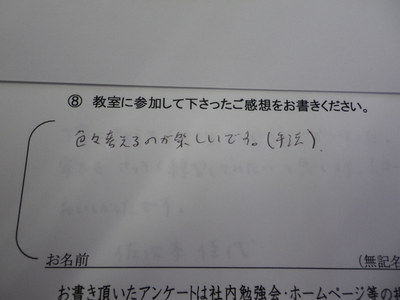 ⑧ 教室に参加して下さったご感想をお書きください。
色々考えるのが楽しいです。(手法)
お名前
(無記名
お書き頂いたアンケートは社内勉強会・ホームページ等の